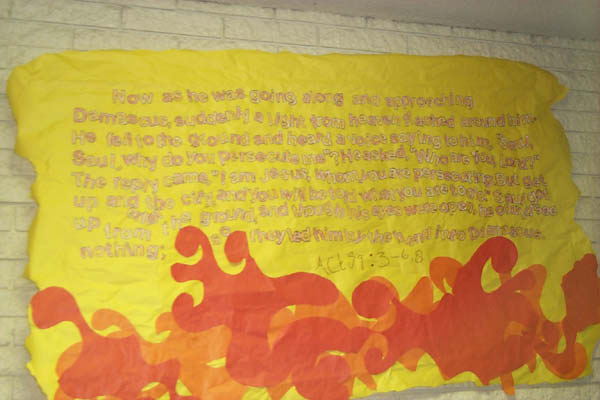 Now as he was going along and approaching
Damascus, suddenly a light from heaven flashed around him.
He fell to the ground and heard a voice saying to him, "Saul,
Saul, why do you persecute me"? He asked, "Who are you, Lord?"
The reply came, "I am Jesus, whom you are persecuting. But get
up and the city, and you will be told what you are to do." Saul got
up from the ground, and though his eyes were open, he could see
nothing; so they led him by the hand into Damascus.
Act 9:3-6,8